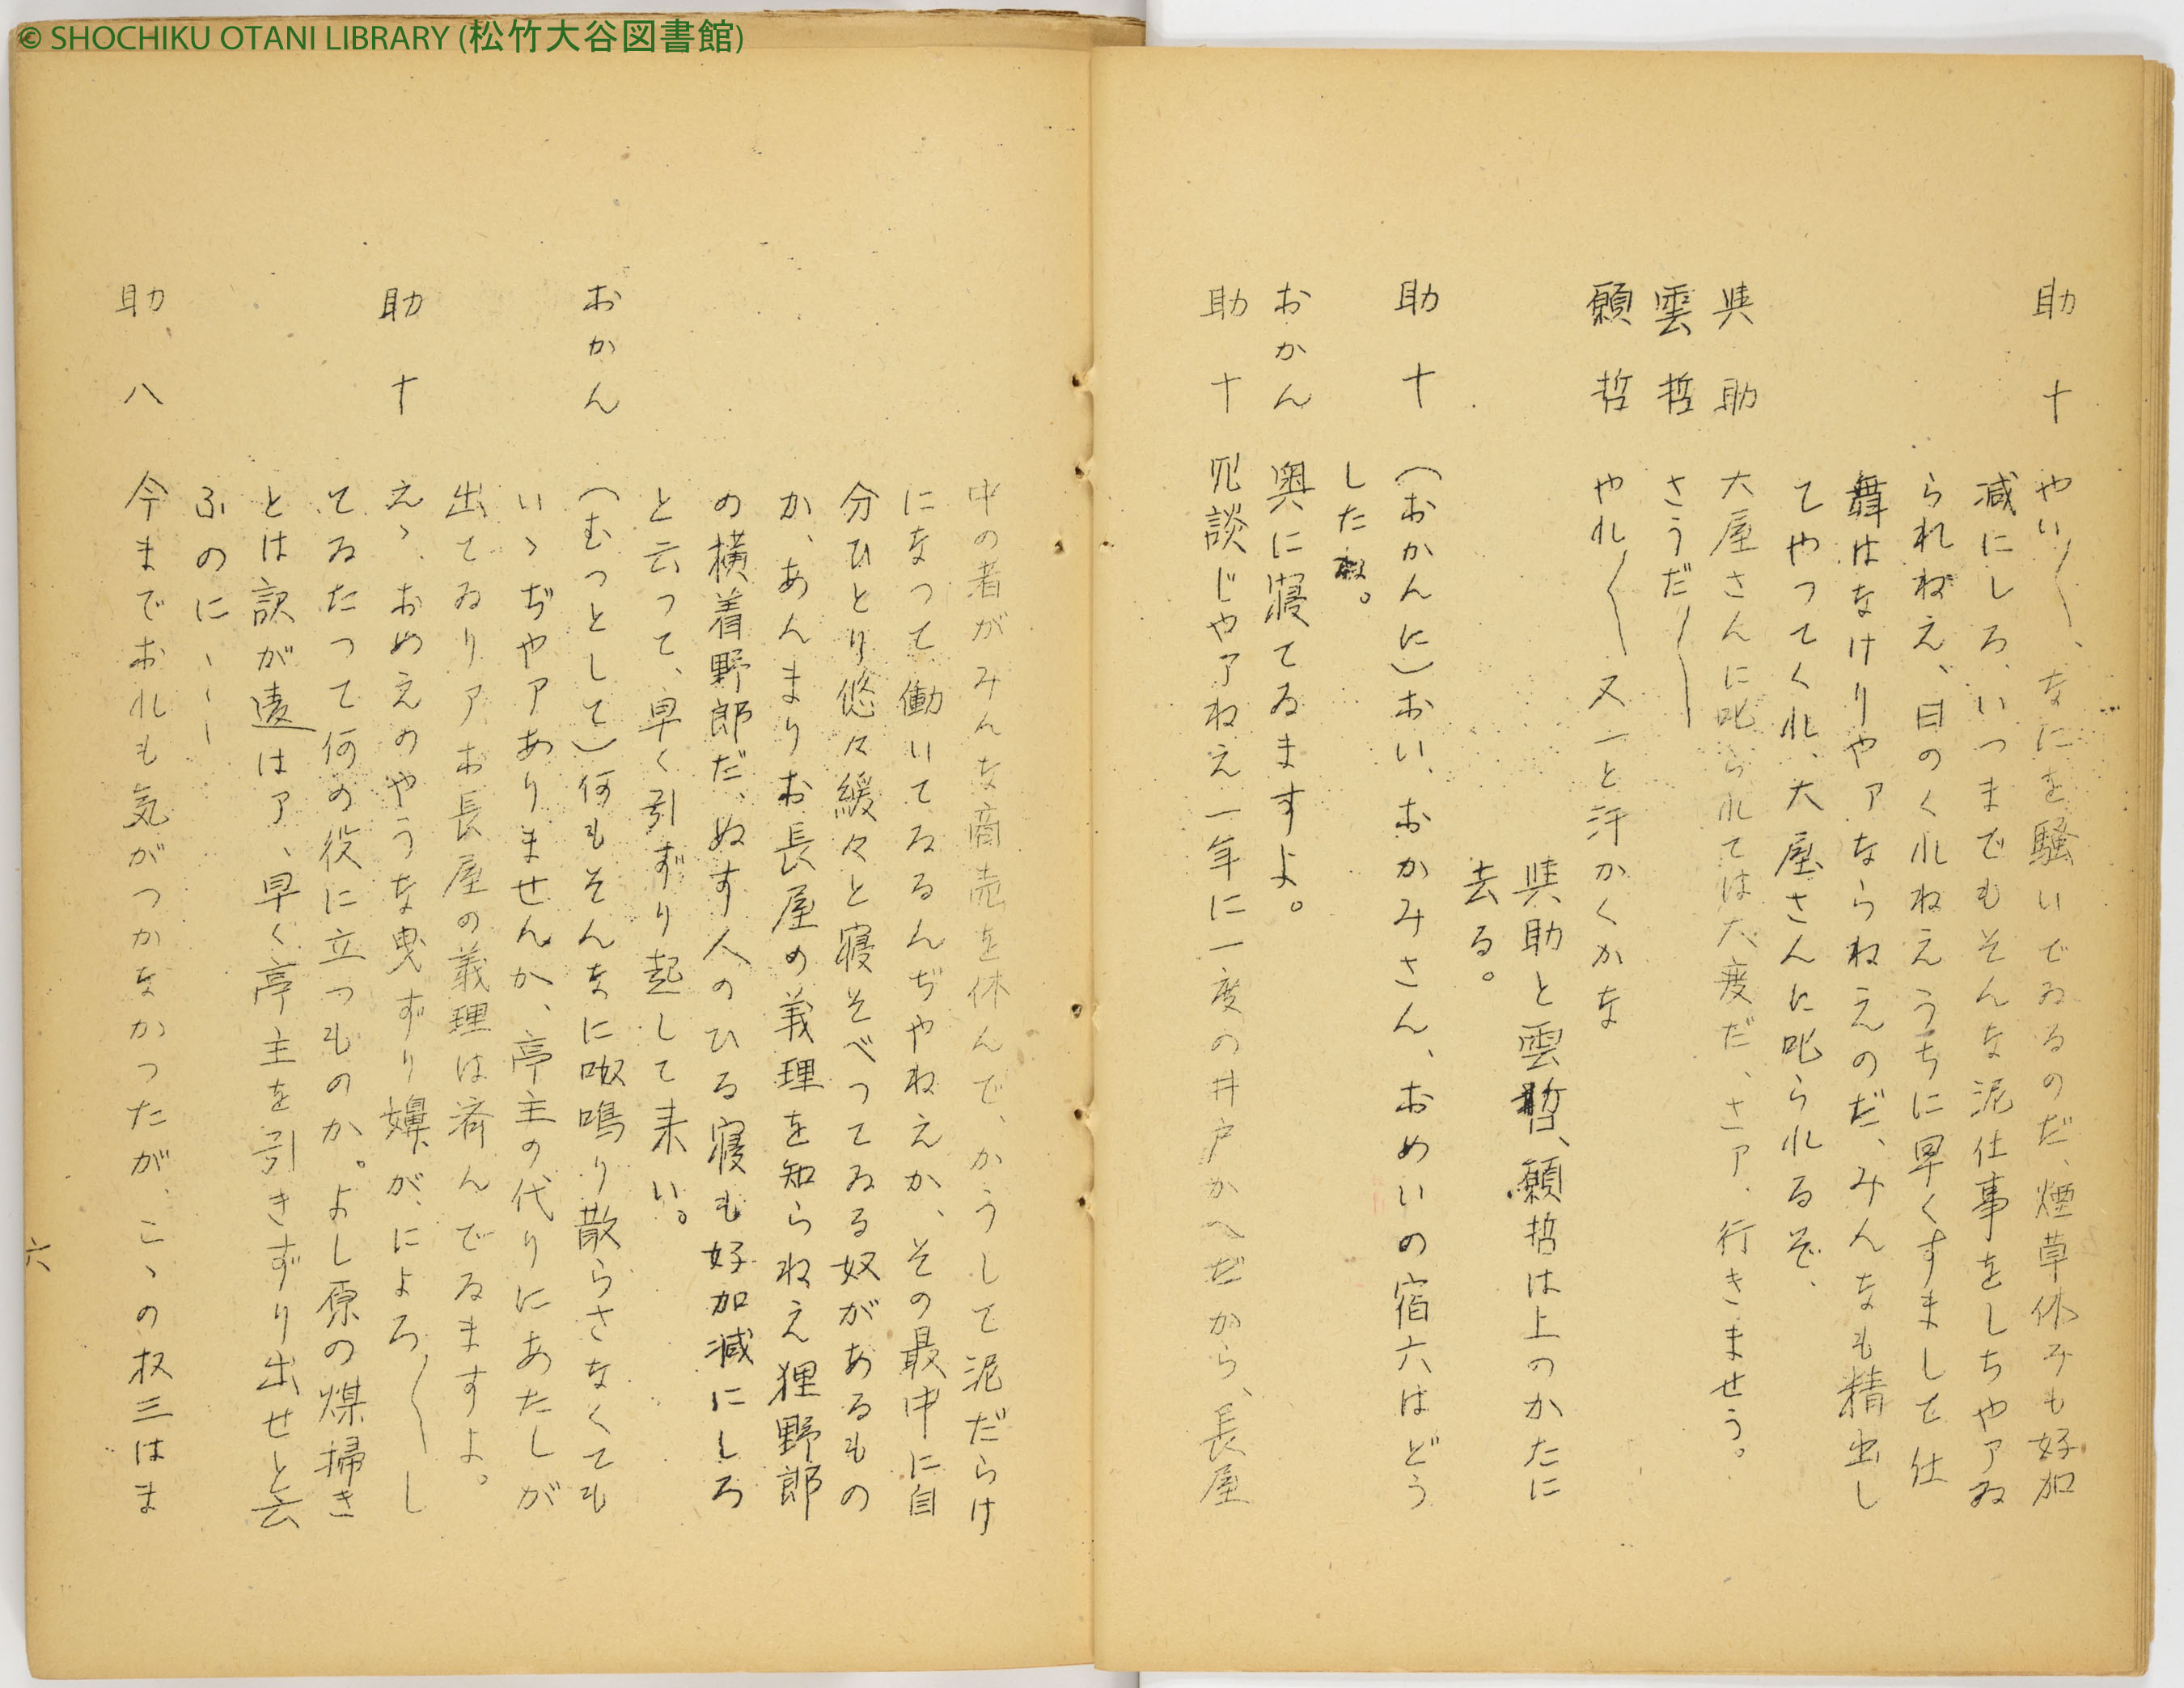 © SHOCHIKU OTANI LIBRARY (松竹大谷図書館)
助十 やい〱、なにを騒いでゐるのだ、煙草休みも好加
減にしろ、いつまでもそんな泥仕事をしちやアゐ
られねえ、日のくれねえうちに早くすまして仕
舞はなけりやアならねえのだ、みんなも精出し
てやつてくれ、大屋さんに叱られるぞ、
與助 大屋さんに叱られては大変だ、さア、行きませう。
雲哲 さうだ〱
願哲 やれ〱又一と汗かくかな
與助と雲哲、願哲は上のかたに
去る。
助十 (おかんに)おい、おかみさん、おめいの宿六はどう
したね。
おかん 奥に寝てゐますよ。
助十 冗談じやアねえ一年に一度の井戸かへだから、長屋
中の者がみんな商売を休んで、かうして泥だらけ
になつて働いてゐるんぢやねえか、その最中に自
分ひとり悠々緩々と寝そべつてゐる奴があるもの
か、あんまりお長屋の義理を知らねえ狸野郎
の横着野郎だ、ぬす人のひる寝も好加減にしろ
と云つて、早く引ずり起して来い。
おかん (むつとして)何もそんなに呶鳴り散らさなくても
いゝぢやアありませんか、亭主の代りにあたしが
出てゐりアお長屋の義理は済んでゐますよ。
助十 えゝ、おめえのやうな曳ずり嬶が、によろ〱し
てゐたつて何の役に立つものか。よし原の煤掃き
とは訳が違はア、早く亭主を引きずり出せと云
ふのに、、ー
助八 今までおれも気がつかなかつたが、こゝの权三はま
六